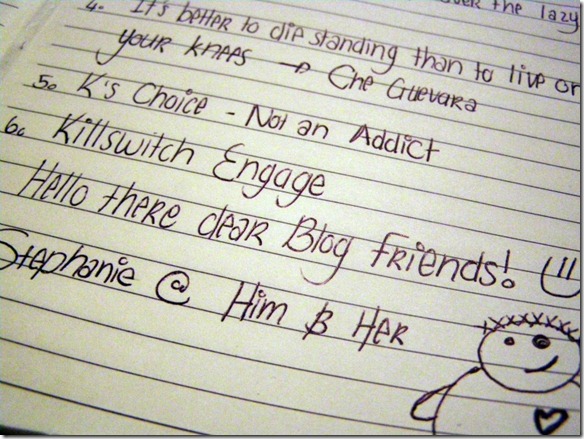 the lazy
4. It's better to die standing than to live on
your knees → Che Guevara
5. K's Choice - Not an Addict
6. Killswitch Engage
Hello there dear Blog friends! :)
Stephanie @ Him & Her